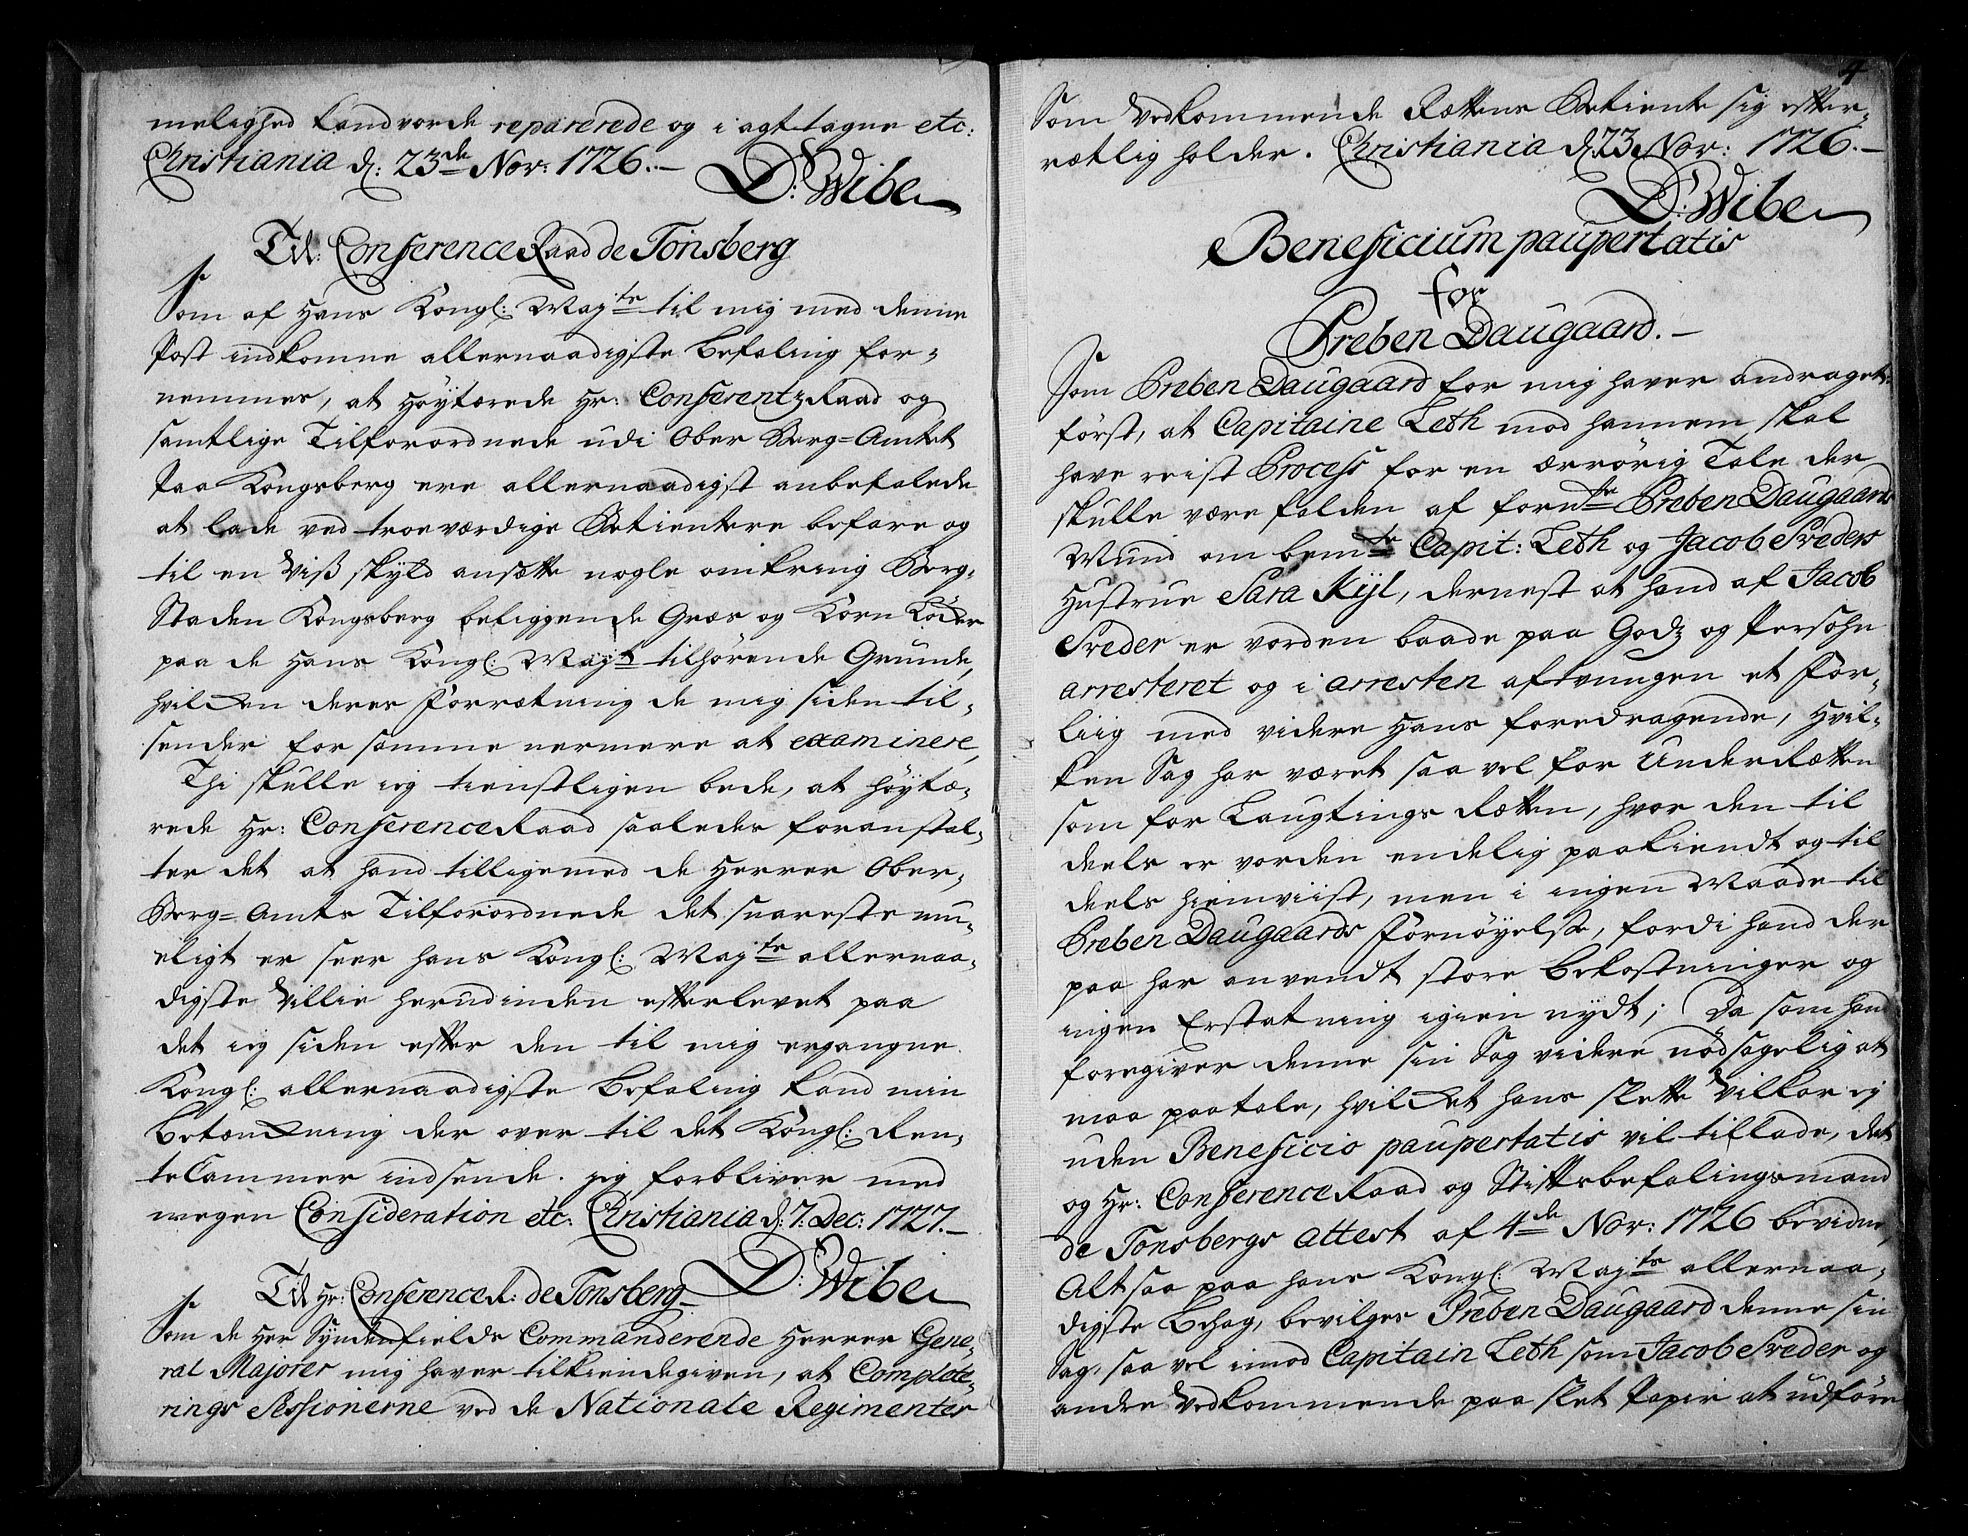 melighed kand vorde reparerede og i agt tagne etc:
Christiania d: 23de Nov: 1726.–
D: Wibe
Til Conference Raad de Tønsberg
Som af Hans Kongl: May:ts til mig med denne
Post indkomne allernaadigste Befaling for-
nemmes, at Høytærede Hr: ConferentzRaad og
samtlige Tilforordnede udi Ober Berg=Amtet
paa Kongsberg ere allernaadigst anbefalede
at lade ved troeværdige Betientere befare og
til en Viß skyld ansætte nogle omkring Berg-
Staden Kongsberg beliggende Græs og Korn Löcker
paa de Hans Kongl: May:t tilhørende Grunde,
hvilcken deres Forretning de mig siden til-
sender for samme nermere at examinere,
Thi skulle ieg tienstligen bede, at Høytæ-
rede Hr: ConferenceRaad saaledes foranstal-
ter det at hand tilligemed de Herrer Ober-
Berg=Amts Tilforordnede det snareste mu-
eligt er seer hans Kongl: May:ts allernaa-
digste Villie herudinden efterlevet paa
det ieg siden efter den til mig ergangne
Kongl: allernaadigste Befaling kand min
Betænckning der over til det Kongl: Ren-
teCammer indsende. jeg forbliver med
megen Consideration etc. Christiania d: 7: Dec: 1727.–
D: Wibe
Til Hr: Conference R: de Tonsberg
Som de Her Syndenfields Commanderende Herrer Gene-
ral Majorer mig haver tilkiendegiven, at Complete-
rings Sessionerne ved de Nationale Regimenter
4
Som Vedkommende Rettens Betiente sig efter-
rætlig holder. Christiania d. 23 Nov: 1726.–
D: Wibe
Beneficium paupertatis
for
Preben Daugaard.–
Som Preben Daugaard for mig haver andraget:
först, at Capitaine Leth mod hannem skal
have reist Process for en ærrørig Tale der
skulle være falden af forn:te Preben Daugaards
Mund om bem:te Capit: Leth og Jacob Sreders
Hustrue Sara Kijl, dernest at hand af Jacob
Sreder er vorden baade paa Godz og Persohn
arresteret og i arresten aftvungen et For-
liig med videre Hans foredragende, Hvil-
ken Sag har været saa vel for UnderRetten
som for Laugtings Retten, hvor den til
deels er vorden endelig paakiendt og til
deels hiemviist, men i ingen Maade til
Preben Daugaards Fornøyelse, fordi hand der
paa har anvendt store Bekostninger og
ingen Erstatning igien nydt; Da som hand
foregiver denne sin Sag videre nödsagelig at
maa paatale, hvilcket hans slette Vilkor ej
uden Beneficio paupertatis vil tillade, det
og Hr: ConferenceRaad og Stiftsbefalingsmand
de Tonsbergs attest af 4de Nov: 1726 bevidner,
Alt saa paa hans Kongl: May:ts allernaa-
digste Behag, bevilges Preben Daugaard denne sin
Sag, saa vel imod Capitain Leth som Jacob Sreder og
andre Vedkommende paa slet Papir at udføre